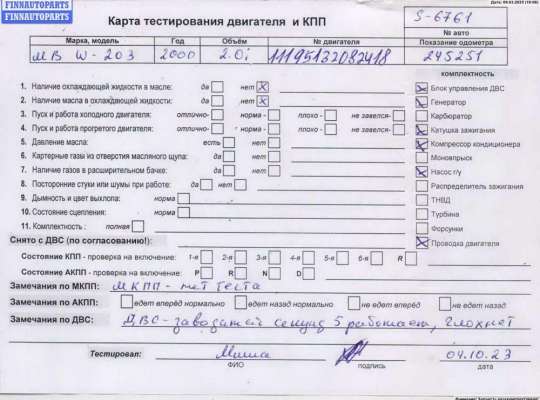 FINNAUTOPARTS
FINNAUTOPARTS
Карта тестирования двигателя и КПП
S-6761
№ авто
Марка, модель Год Объём № двигателя Показание одометра
МВ W-203 2000 2.0i 11195132082418 245251
комплектность
1. Наличие охлаждающей жидкости в масле: да нет
2. Наличие масла в охлаждающей жидкости: да нет
3. Пуск и работа холодного двигателя: отлично- норма - плохо - не завелся-
4. Пуск и работа прогретого двигателя: отлично- норма - плохо - не завелся-
5. Давление масла: есть нет
6. Картерные газы из отверстия масляного щупа: да нет
7. Наличие газов в расширительном бачке: да нет
8. Посторонние стуки или шумы при работе: да нет
9. Дымность и цвет выхлопа: норма
10. Состояние сцепления: норма
11. Комплектность : полная
Блок управления ДВС
Генератор
Карбюратор
Катушка зажигания
Компрессор кондиционера
Моновпрыск
Насос г/у
Распределитель зажигания
ТНВД
Турбина
Форсунки
Проводка двигателя
Снято с ДВС (по согласованию!):
Состояние КПП - проверка на включение: 1-я 2-я 3-я 4-я 5-я 6-я R
Состояние АКПП - проверка на включение: P R N D
Замечания по МКПП: МКПП - нет теста
Замечания по АКПП: едет вперёд нормально едет назад нормально не едет вперёд не едет назад
Замечания по ДВС: ДВС - заводится секунд 5 работает, глохнет
Тестировал: Миша 04.10.23
ФИО подпись дата